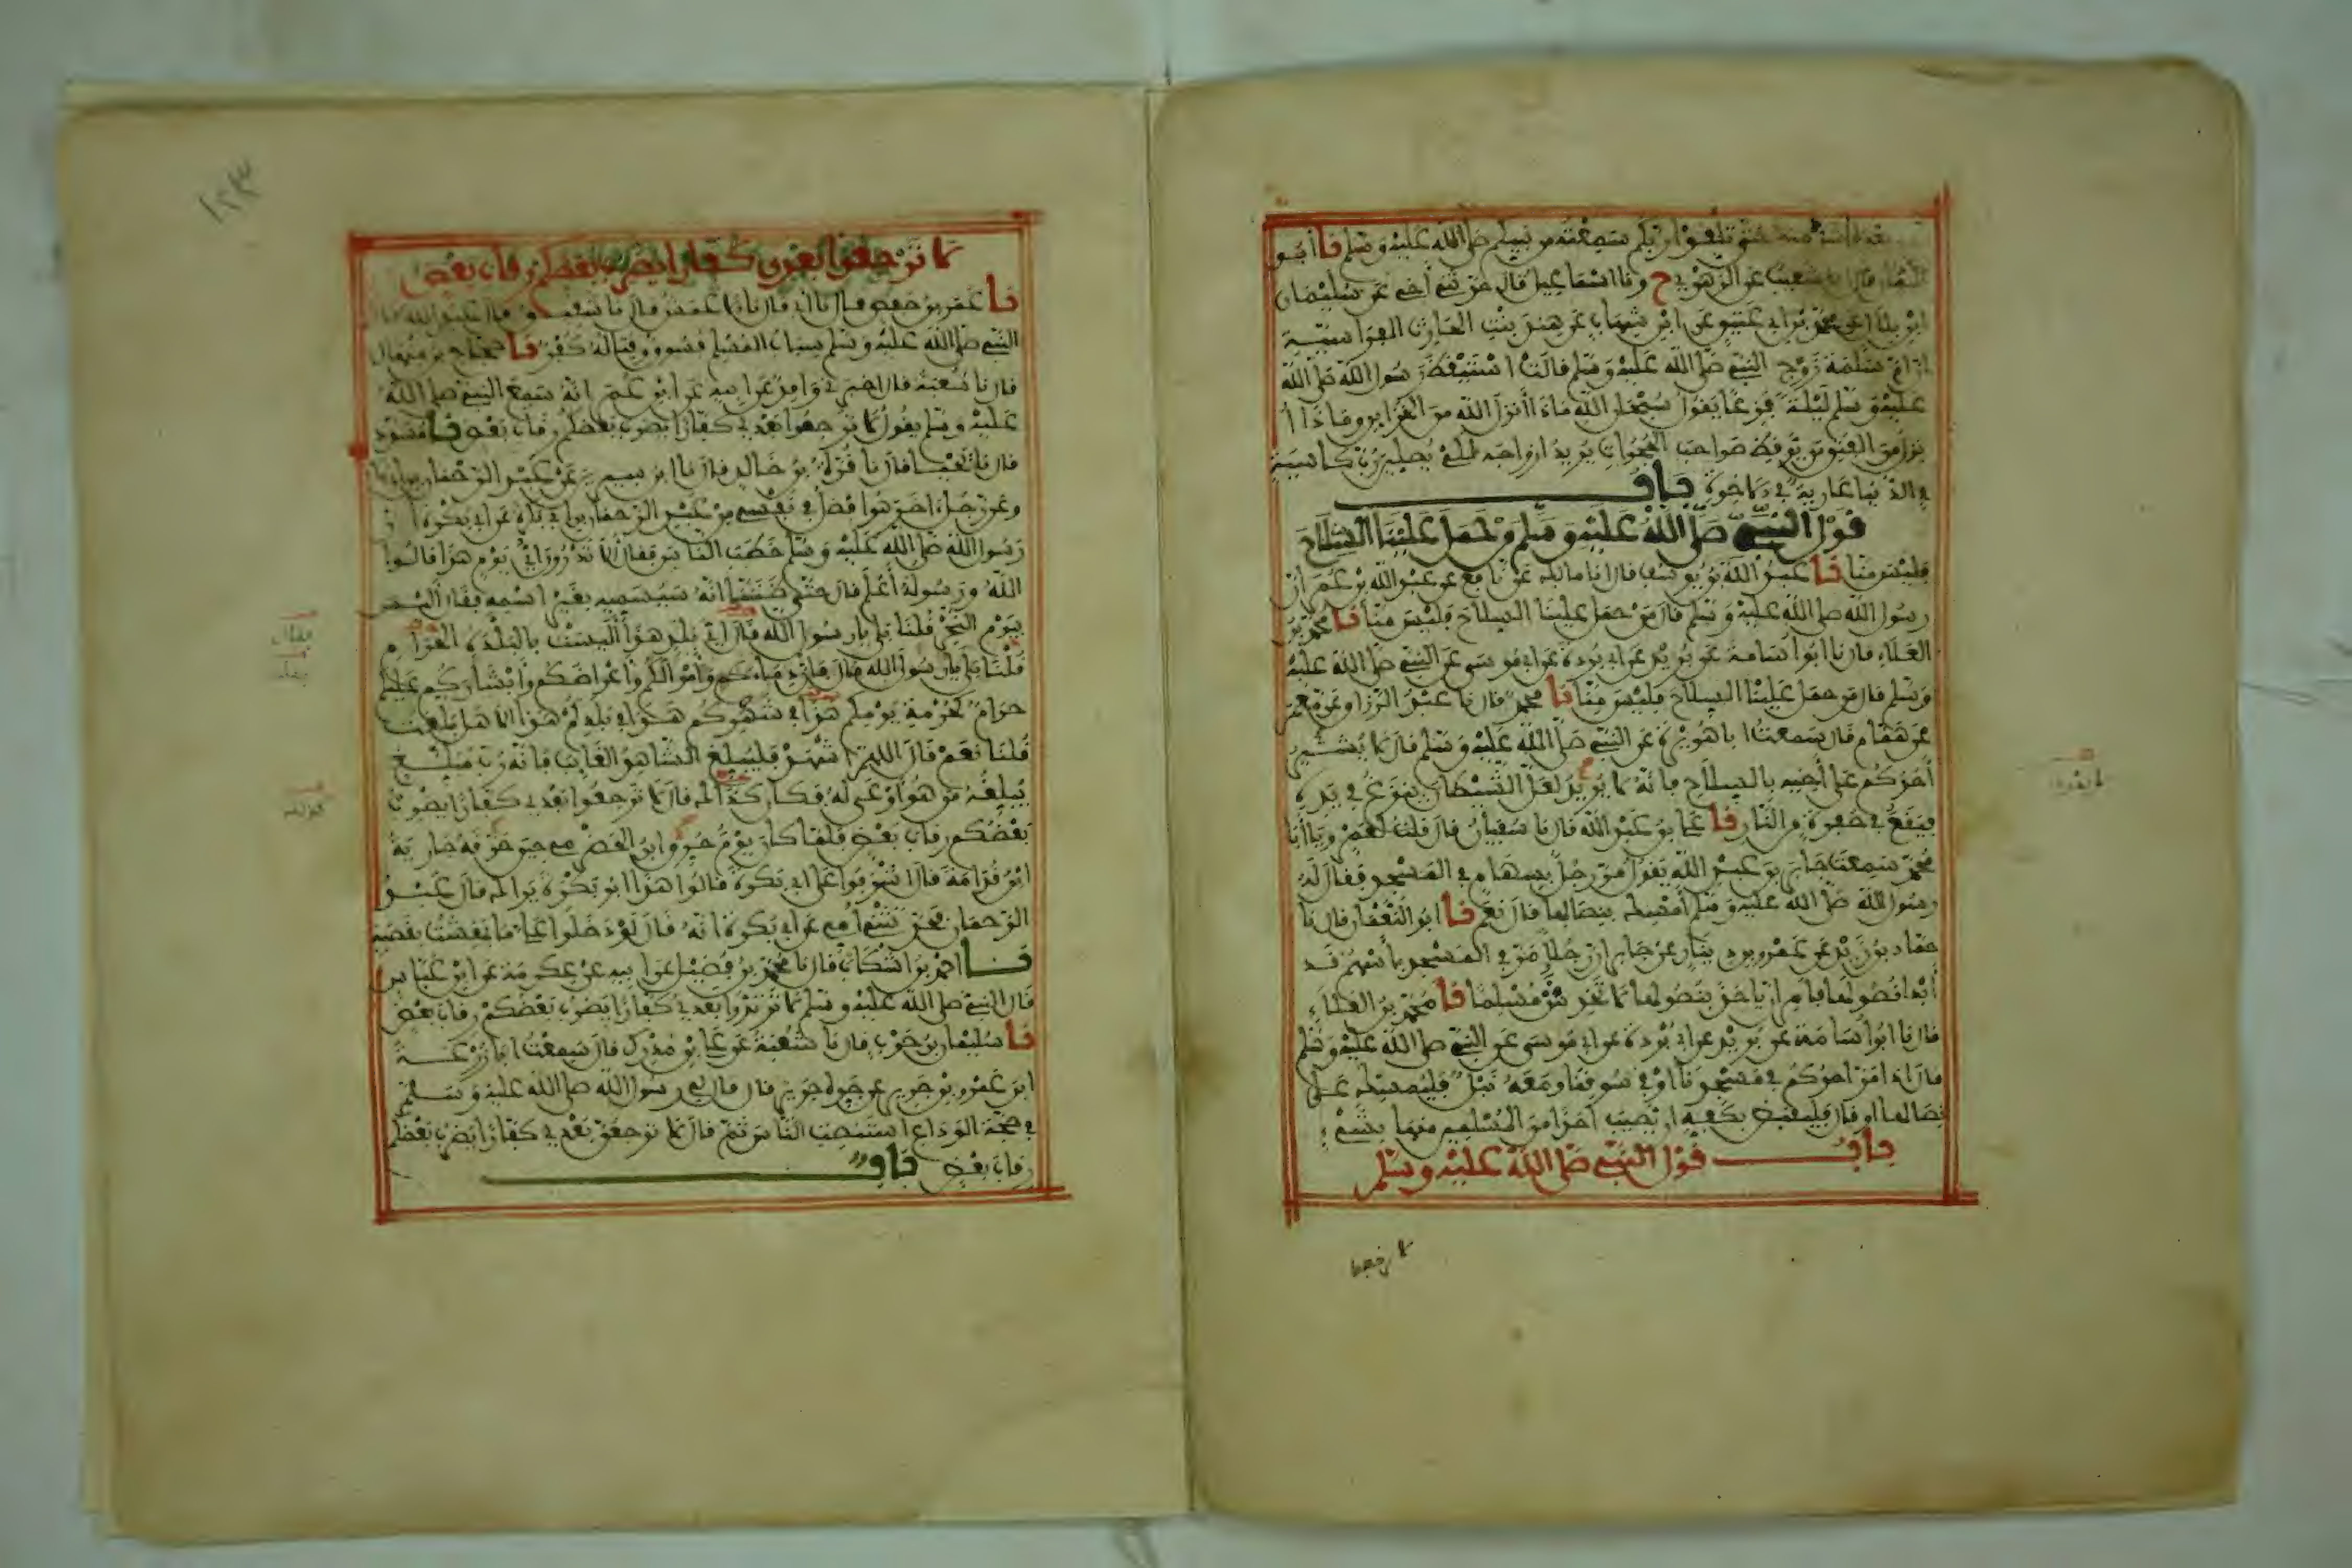 بعده اشر منه حتى تلقوا ربكم سمعته من نبيكم صلى الله عليه وسلم نا أبو
اليمان قال نا شعيب عن الزهري ح ونا اسماعيل قال حدثني أخي عن سليمان
ابن بلال عن محمد بن أبي عتيق عن ابن شهاب عن هند بنت الحارث الفراسية
ان ام سلمة زوج النبي صلى الله عليه وسلم قالت استيقظ رسول الله صلى الله
عليه وسلم ليلة فزعا يقول سبحان الله ماذا أنزل الله من الخزاين وماذا أ
نزل من الفتن من يوقظ صواحب الحجرات يريد أزواجه لكي يصلين رب كاسية
في الدنيا عارية في الاخرة باب
قول النبي صلى الله عليه وسلم من حمل علينا السلاح
فليس منا نا عبد الله بن يوسف قال انا مالك عن نافع عن عبد الله بن عمر أن
رسول الله صلى الله عليه وسلم قال من حمل علينا السلاح فليس منا نا محمد بن
العلاء قال نا ابو اسامة عن بريد عن أبي بردة عن أبي موسى عن النبي صلى الله عليه
وسلم قال من حمل علينا السلاح فليس منا نا محمد قال نا عبد الرزاق عن معمر
عن همام قال سمعت أبا هريرة عن النبي صلى الله عليه وسلم قال لا يشير
أحدكم على أخيه بالسلاح فانه لا يدري لعل الشيطان ينزغ في يده
فيقع في حفرة من النار نا علي بن عبد الله قال نا سفيان قال قلت لعمرو يا أبا
محمد سمعت جابر بن عبد الله يقول مر رجل بسهام في المسجد فقال له
رسول الله صلى الله عليه وسلم أمسك بنصالها قال نعم نا ابو النعمان قال نا
حماد بن زيد عن عمرو بن دينار عن جابر ان رجلا مر في المسجد بأسهم قد
أبدا نصولها فامر ان ياخذ بنصولها لا تخدش مسلما نا محمد بن العلاء
قال نا ابو اسامة عن بريد عن أبي بردة عن أبي موسى عن النبي صلى الله عليه وسلم
قال اذا مر أحدكم في مسجدنا أو في سوقنا ومعه نبل فليمسك على
نصالها او قال فليقبض بكفه ان يصيب أحدا من المسلمين منها بشيء
باب قول النبي صلى الله عليه وسلم
لا ترجعوا
١٢٣
لا ترجعوا بعدي كفارا يضرب بعضكم رقاب بعض
نا عمر بن حفص قال نا أبي قال نا الاعمش قال نا شقيق قال قال عبد الله قال
النبي صلى الله عليه وسلم سباب المسلم فسوق وقتاله كفر نا حجاج بن منهال
قال نا شعبة قال اخبرني واقد عن أبيه عن ابن عمر انه سمع النبي صلى الله
عليه وسلم يقول لا ترجعوا بعدي كفارا يضرب بعضكم رقاب بعض نا مسدد
قال نا يحيى قال نا قرة بن خالد قال نا ابن سيرين عن عبد الرحمان بن أبي بكرة
وعن رجل اخر هو افضل في نفسي من عبد الرحمان بن أبي بكرة عن أبي بكرة ان
رسول الله صلى الله عليه وسلم خطب الناس فقال ألا تدرون أي يوم هذا قالوا
الله ورسوله أعلم قال حتى ظننا انه سيسميه بغير اسمه فقال أليس
بيوم النحر قلنا بلى يا رسول الله قال أي بلد هذا أليست بالبلدة الحرام
قلنا بلى يا رسول الله قال فان دماءكم وأموالكم وأعراضكم وأبشاركم عليكم
حرام كحرمة يومكم هذا في شهركم هذا في بلدكم هذا ألا هل بلغت
قلنا نعم قال اللهم اشهد فليبلغ الشاهد الغايب فانه رب مبلغ
يبلغه من هو أوعى له فكان كذلك قال لا ترجعوا بعدي كفارا يضرب
بعضكم رقاب بعض فلما كان يوم حرق ابن الحضرمي حين حرقه جارية
ابن قدامة قال أشرفوا على أبي بكرة فقالوا هذا أبو بكرة يراك قال عبد
الرحمان فحدثتني أمي عن أبي بكرة أنه قال لو دخلوا علي ما بهشت بقصبة
نا احمد بن اشكاب قال نا محمد بن فضيل عن أبيه عن عكرمة عن ابن عباس
قال النبي صلى الله عليه وسلم لا ترتدوا بعدي كفارا يضرب بعضكم رقاب بعض
نا سليمان بن حرب قال نا شعبة عن علي بن مدرك قال سمعت أبا زرعة
ابن عمرو بن جرير عن جده جرير قال قال لي رسول الله صلى الله عليه وسلم
في حجة الوداع استنصت الناس ثم قال لا ترجعوا بعدي كفارا يضرب بعضكم
رقاب بعض باب
فقال